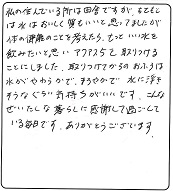 私の住んでいる所は田舎ですが、もともと
は水はおいしく質もいいと思ってましたが
体の健康のことを考えたら、もっといい水を
飲みたいと思いアクアス5で取りつける
ことにしました。取りつけてからのおふろは
水がやわらかで、まろやかで 水に浮き
そうなぐらい気持ちがいいです。こんな
ぜいたくな暮らしに感謝して過ごして
いる毎日です。ありがとうございます。